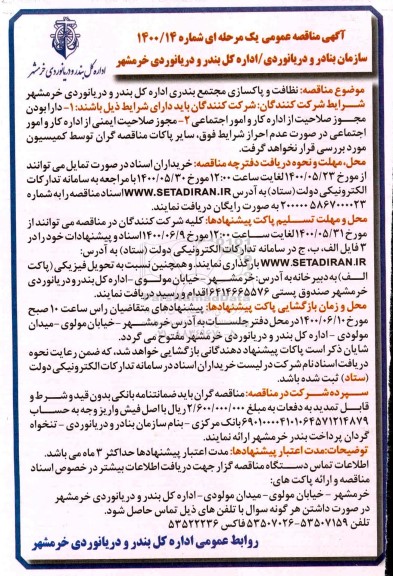 آگهی مناقصه عمومی یک مرحله ای شماره ۱۴۰۰/۱۴
سازمان بنادر و دریانوردی / اداره کل بندر و دریانوردی خرمشهر
اداره کل بندر و دریانوردی خرمشهر
موضوع مناقصه: نظافت و پاکسازی مجتمع بندری اداره کل بندر و دریانوردی خرمشهر
شرایط شرکت کنندگان: شرکت کنندگان باید دارای شرایط ذیل باشند: ۱- دارا بودن
مجوز صلاحیت از اداره کار و امور اجتماعی ۲- مجوز صلاحیت ایمنی از اداره کار و امور
اجتماعی در صورت عدم احراز شرایط فوق، سایر پاکات مناقصه گران توسط کمیسیون
مورد بررسی قرار نخواهد گرفت.
محل، مهلت و نحوه دریافت دفترچه مناقصه: خریداران اسناد در صورت تمایل می توانند
از مورخ ۱۴۰۰/۰۵/۲۳ لغایت ساعت ۱۲:۰۰ مورخ ۱۴۰۰/۰۵/۳۰ با مراجعه به سامانه تدارکات
الکترونیکی دولت (ستاد) به آدرس WWW.SETADIRAN.IR اسناد مناقصه را به شماره
۲۰۰۰۰۰۵۸۶۷۰۰۰۰۲۳ به صورت رایگان دریافت نمایند.
محل و مهلت تسلیم پاکت پیشنهادها: کلیه شرکت کنندگان در مناقصه می توانند از
مورخ ۱۴۰۰/۰۵/۳۱ لغایت ساعت ۱۲:۰۰ مورخ ۱۴۰۰/۰۶/۹ اسناد و پیشنهادات خود را در
۳ فایل الف، ب، ج در سامانه تدارکات الکترونیکی دولت (ستاد) به آدرس:
WWW.SETADIRAN.IR بارگذاری نمایند. و همچنین نسبت به تحویل فیزیکی (پاکت
الف) به دبیرخانه به آدرس: خرمشهر - خیابان مولوی - اداره کل بندر و دریانوردی
خرمشهر صندوق پستی ۶۴۱۴۶۶۵۵۷۶ اقدام و رسید دریافت نمایند.
محل و زمان بازگشایی پاکت پیشنهادها: پیشنهادهای متقاضیان راس ساعت ۱۰ صبح
مورخ ۱۴۰۰/۰۶/۱۰ در محل دفتر جلسات به آدرس خرمشهر - خیابان مولوی - میدان
مولودی - اداره کل بندر و دریانوردی خرمشهر مفتوح می گردد.
شایان ذکر است پاکات پیشنهاد دهندگانی بازگشایی خواهد شد، که ضمن رعایت نحوه
دریافت اسناد نام شرکت در لیست خریداران اسناد در سامانه تدارکات الکترونیکی دولت
(ستاد) ثبت شده باشد.
سپرده شرکت در مناقصه: مناقصه گران باید ضمانتنامه بانکی بدون قید و شرط و
قابل تمدید به دفعات به مبلغ ۲/۶۰۰/۰۰۰/۰۰۰ ریال یا اصل فیش واریز وجه به حساب
بانک مرکزی - بنام سازمان بنادر و دریانوردی - تنخواه
گردان پرداخت بندر خرمشهر ارائه نمایند.
توضیحات: مدت اعتبار پیشنهادها: مدت اعتبار پیشنهادها حداکثر ۳ ماه می باشد.
اطلاعات تماس دستگاه مناقصه گزار جهت دریافت اطلاعات بیشتر در خصوص اسناد
مناقصه و ارائه پاکت های:
خرمشهر - خیابان مولوی - میدان مولودی - اداره کل بندر و دریانوردی خرمشهر
در صورت داشتن هر گونه سوال با تلفن های ذیل تماس حاصل شود.
تلفن ۵۳۵۰۷۱۵۹-۵۳۵۰۷۰۲۶ فاکس ۵۳۵۲۲۲۳۶
روابط عمومی اداره کل بندر و دریانوردی خرمشهر